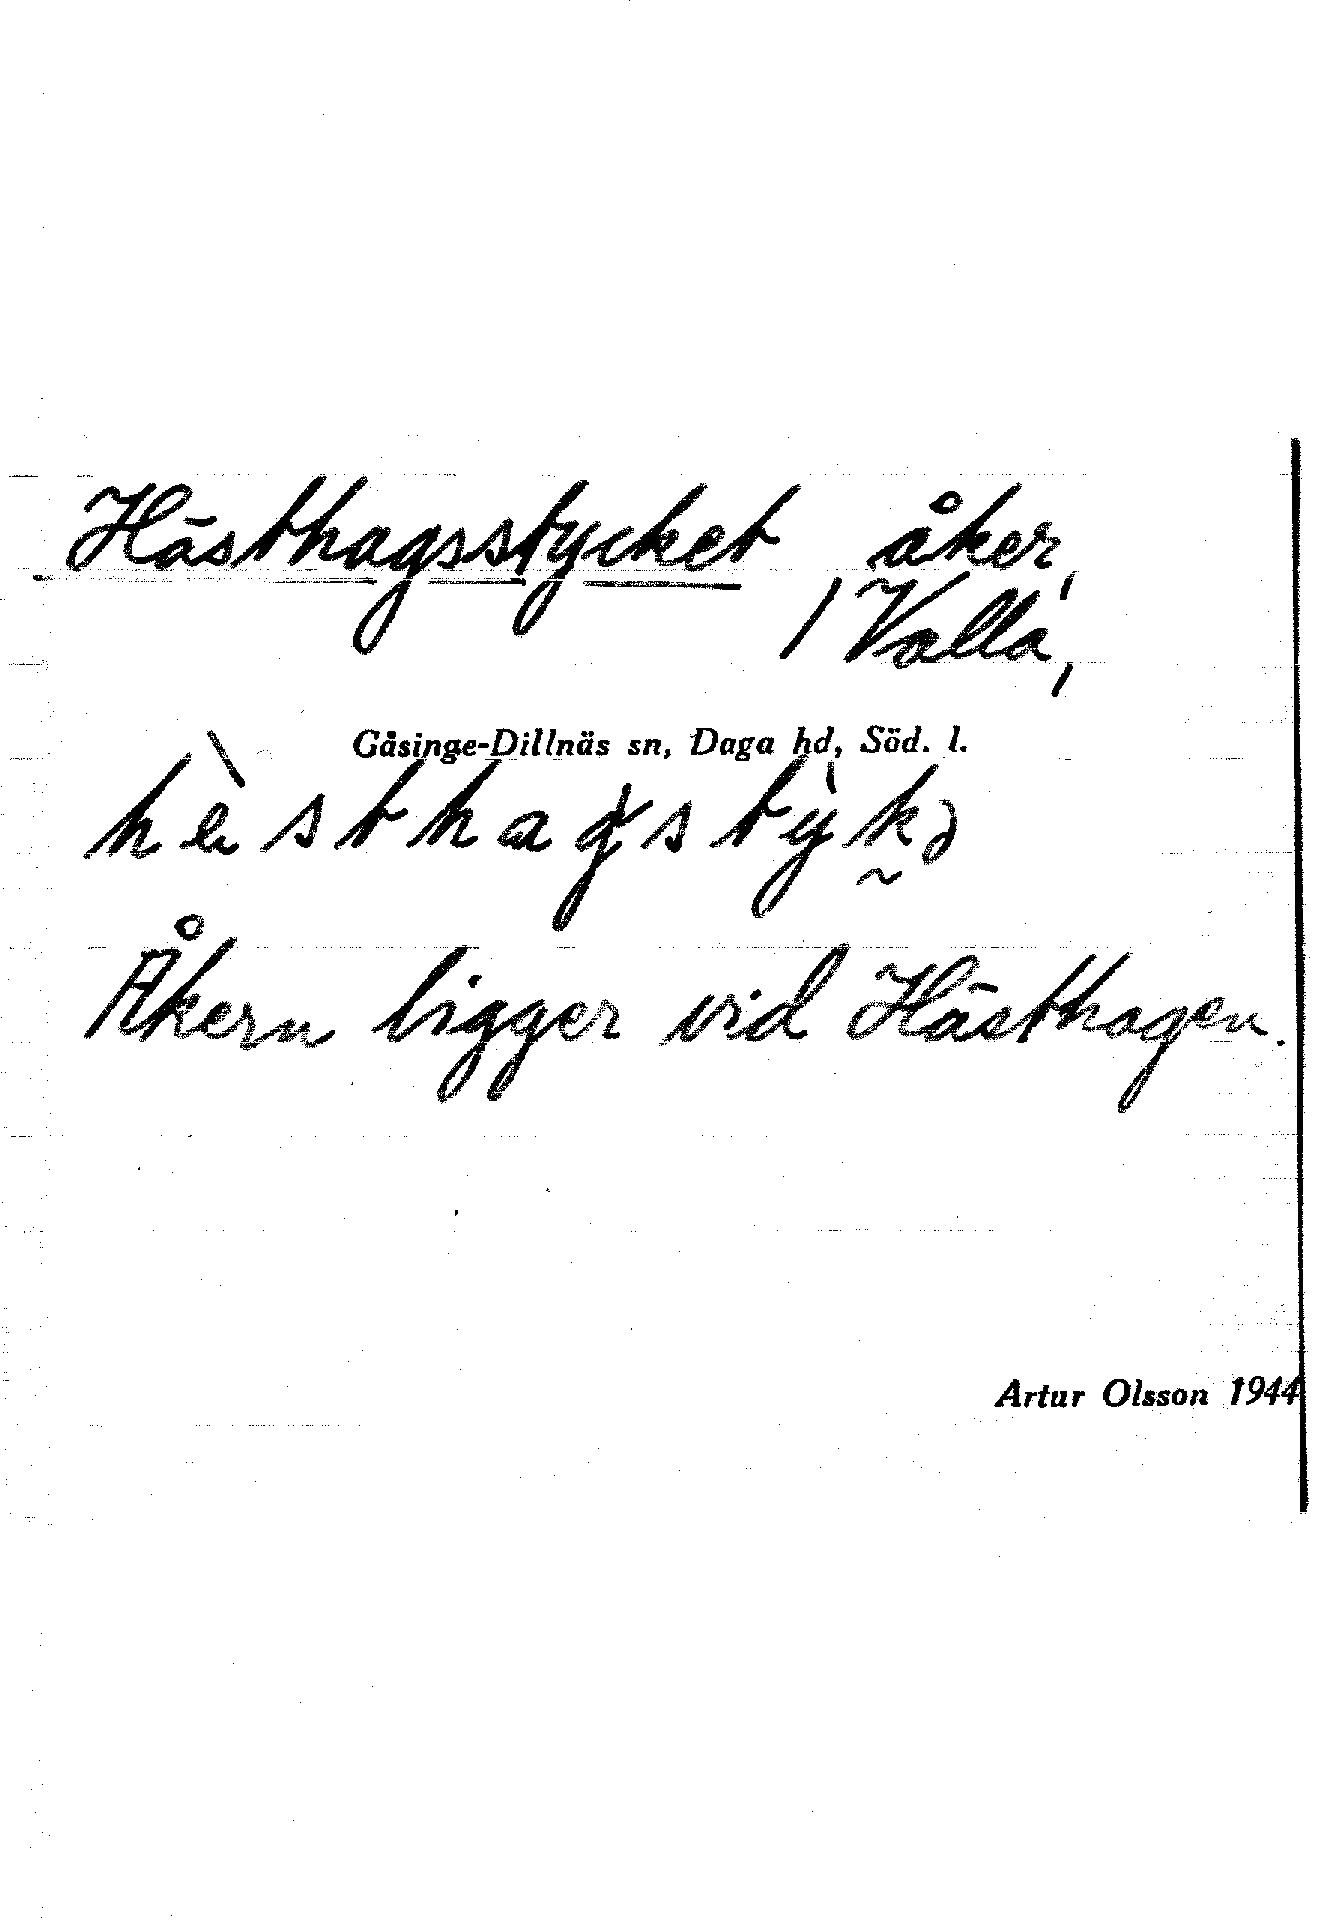 Hästhagsstycket åker,
/ Valla,
Gåsinge-Dillnäs sn, Daga hd, Söd. l.
hèsthagstỳkə
Åkern ligger vid Hästhagen.
Artur Olsson 1944